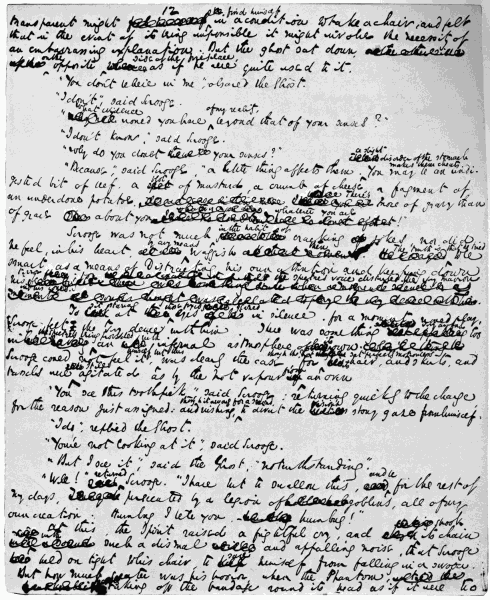 12
transparent might find himself in a condition to take a chair, and felt
that in the event of its being impossible it might involve the necessity of
an embarrassing explanation. But the ghost sat down
opposite side of the fireplace, as if he were quite used to it.
"You don't believe in me"; observed the Ghost.
"I don't"; said Scrooge.
"What evidence would you have of my reality, beyond that of your senses?"
"I don't know"; said Scrooge.
"Why do you doubt your senses?"
"Because"; said Scrooge, "a little thing affects them. a slight disorder of the stomach makes them cheats. You may be an undi-
gested bit of beef, a blot of mustard, a crumb of cheese, a fragment of
an underdone potato. There's more of gravy than
of grave about you, whatever you are!"
Scrooge was not much in the habit of cracking jokes, nor did
he feel, in his heart, by any means waggish then. The truth is, he tried to be
smart, as a means of distracting his own attention, and keeping down
his terror; for the spectre's voice disturbed the very marrow
in his bones.
To sit, staring at those fixed glazed eyes in silence for a moment, would play,
Scrooge felt, the very deuce with him. There was something very awful, too,
in the spectre's being provided with an infernal atmosphere of its own.
Scrooge could not feel it himself, but this was clearly the case; for though the Ghost sat perfectly motionless, its hair, and skirts, and
tassels, were still agitated as by the hot vapour from an oven.
"You see this toothpick"; said Scrooge; returning quickly to the charge
for the reason just assigned; and wishing, though it were only for a second, to divert the vision's stony gaze from himself.
"I do"; replied the Ghost.
"You're not looking at it"; said Scrooge.
"But I see it"; said the Ghost, "notwithstanding."
"Well!" returned Scrooge. "I have but to swallow this, and be for the rest of
my days, persecuted by a legion of goblins, all of my
own creation. Humbug I tell you; humbug!"
At this, the Spirit raised a frightful cry, and shook its chain
with such a dismal and appalling noise, that Scrooge
held on tight to his chair, to save himself from falling in a swoon.
But how much greater was his horror, when the Phantom,
taking off the bandage round its head, as if it were too